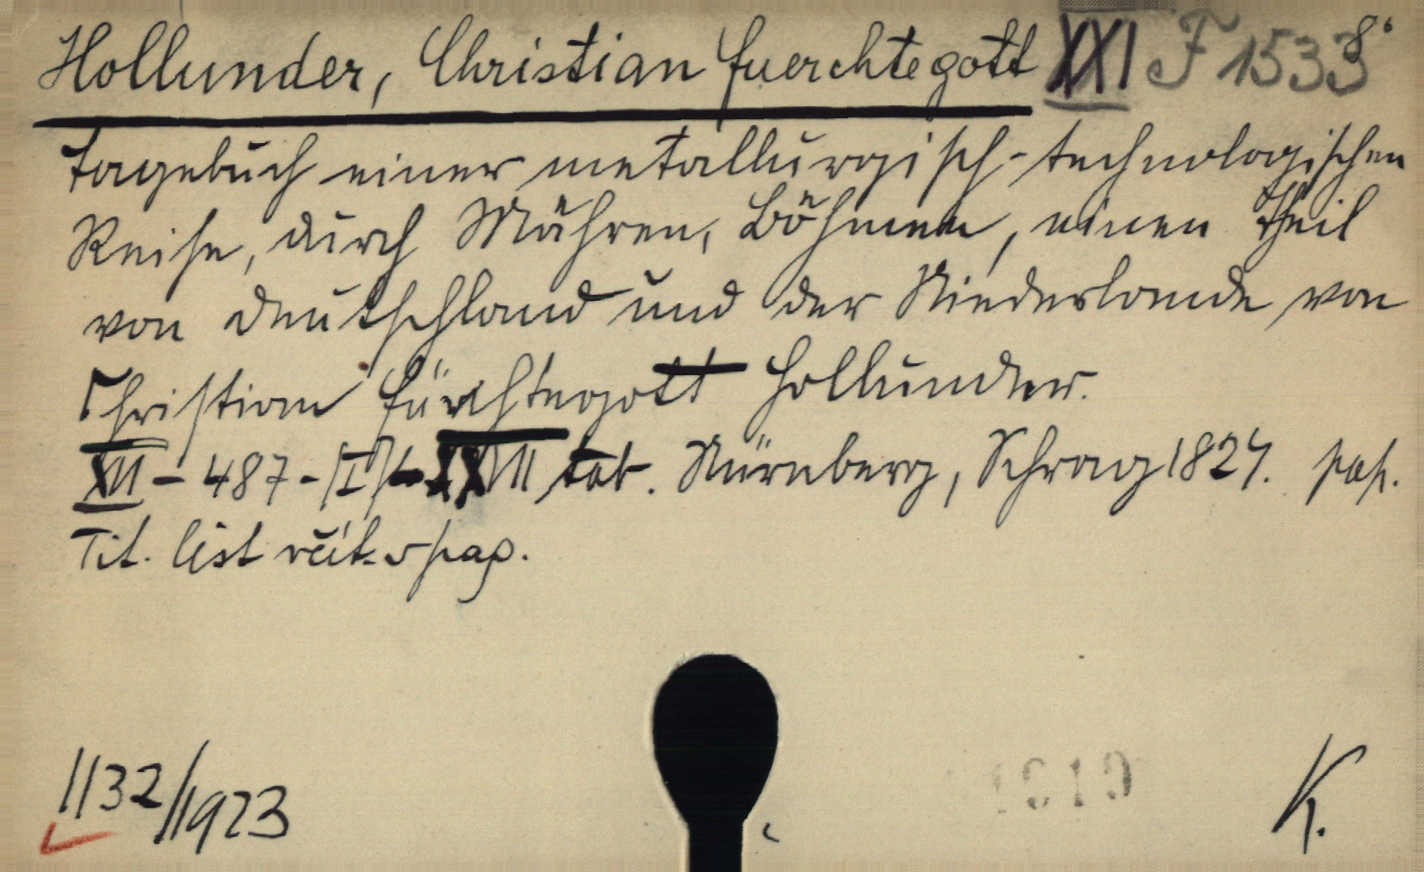 Hollunder, Christian Fuerchtegott XXI F 1533 8°
Tagebuch einer metallurgisch-technologischen
Reise, durch Mähren, Böhmen, einen Theil
von Deutschland und der Niederlande von
Christian Fürchtegott Hollunder.
XII - 487 - [I] - XVII tab. Nürnberg, Schrag 1824. pap.
Tit. list rčit. spap.
1132/1923
K.